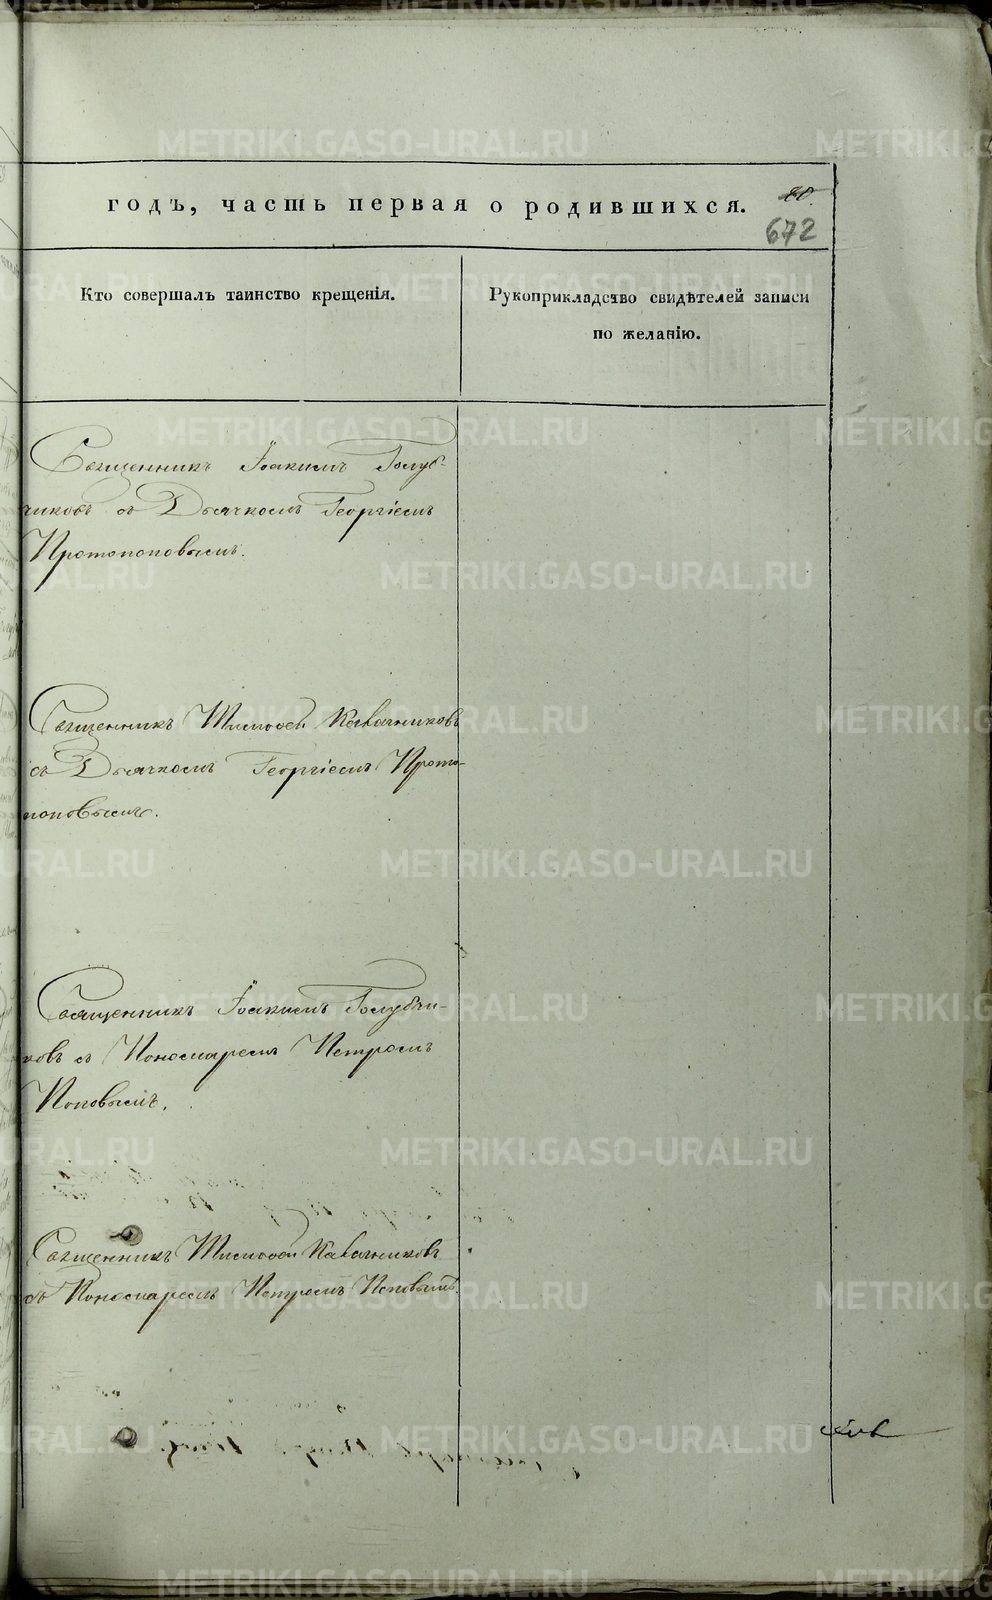 годъ, часть первая о родившихся.
80.
672
Кто совершалъ таинство крещенія.
Рукоприкладство свидѣтелей записи
по желанію.
Священникъ Іоакимъ Голуб-
чиковъ съ Дьячкомъ Георгіемъ
Протопоповымъ.
Священникъ Тимофей
съ Дьячкомъ Георгіемъ Прото-
поповымъ.
Священникъ Іоакимъ Голубчи-
ковъ съ Пономаремъ Петромъ
Поповымъ.
Священникъ Тимофей
съ Пономаремъ Петромъ Поповымъ.
METRIKI.GASO-URAL.RU